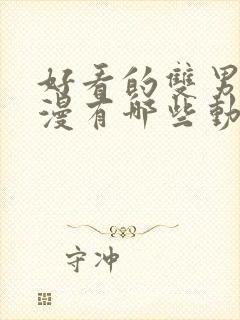 好看的雙男
漫有哪些動
守冲